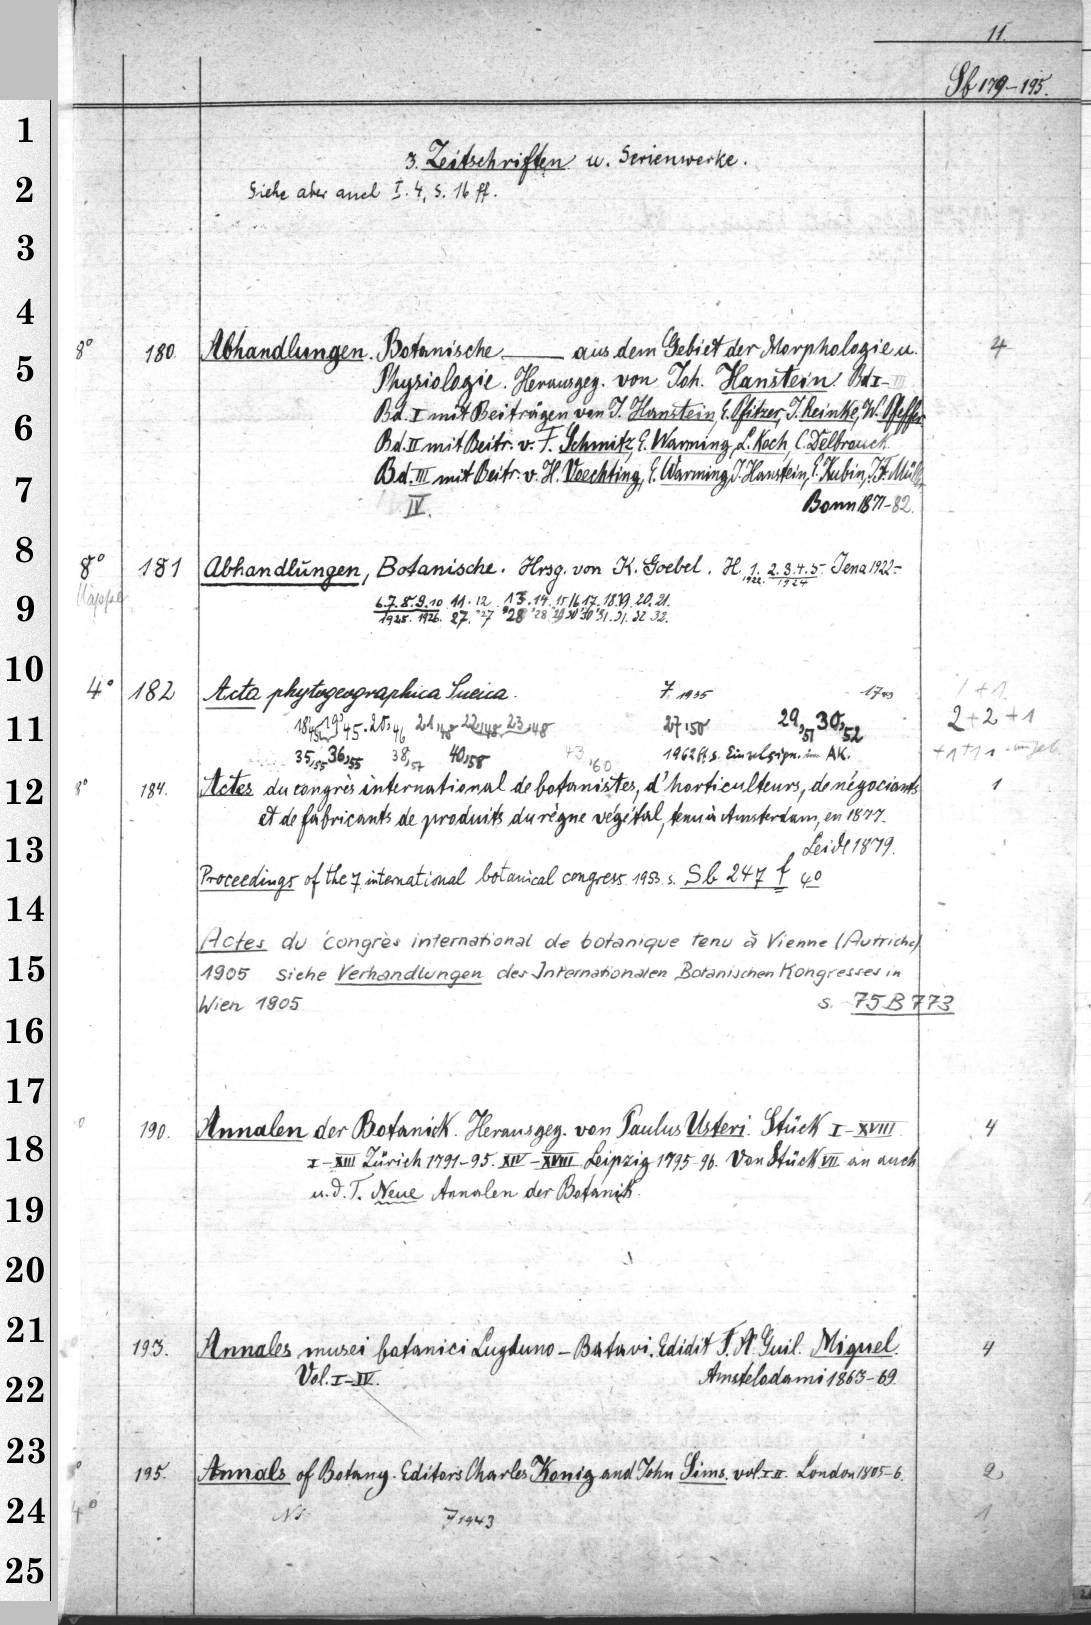 11.
Sb 179-195.
1
3. Zeitschriften u. Serienwerke.
2
Siehe aber auch I. 4, S. 16 ff.
3
4
8° 180. Abhandlungen. Botanische ——— aus dem Gebiet der Morphologie u. 4
5
Physiologie. Herausgeg. von Joh. Hanstein. Bd I-III
Bd. I mit Beiträgen von J. Hanstein, E. Pfitzer, J. Reinke, W. Pfeffer
6
Bd. II mit Beitr. v. F. Schmitz, E. Warming, L. Koch, C. Delbrouck.
Bd. III mit Beitr. v. H. Voechting, E. Warming, J. Hanstein, E. Kubin, J. F. Müller
7
IV. Bonn 1871-82.
8
8° 181 Abhandlungen, Botanische. Hrsg. von K. Goebel. H. 1. 2.3.4.5. Jena 1922-
1922. 1924
9
Kapsel 6.7.8.9.10 11. 12 13. 14. 15 16 17. 18. 19. 20. 21.
1925. 1926. 27. '27 '28 '28 29 30 30 31. 31. 32 32.
10
4° 182 Acta phytogeographica Suecica. 7. 1935 1 + 1
11
18,45 19,45. 20,46 21,48 22,48 23,48 27,50 29,51 30,52 2+2+1
35,55 36,55 38,57 40,58 43,60 1962 ff. s. Einzelsign. im AK.
12
8° 184. Actes du congrès international de botanistes, d'horticulteurs, de négociants 1
et de fabricants de produits du règne végétal, tenu à Amsterdam, en 1877.
13
Leide 1879.
Proceedings of the 7. international botanical congress 1953 s. Sb 247 f 4°
14
Actes du congrès international de botanique tenu à Vienne (Autriche)
15
1905 siehe Verhandlungen des Internationalen Botanischen Kongresses in
Wien 1905 s. 75 B 773
16
17
190. Annalen der Botanick. Herausgeg. von Paulus Usteri. Stück I-XVIII 4
18
I-XIII Zürich 1791-95. XIV-XVIII Leipzig 1795-96. Von Stück VII an auch
u. d. T. Neue Annalen der Botanik.
19
20
21
193. Annales musei botanici Lugduno-Batavi. Edidit F. A. Guil. Miquel. 4
22
Vol. I-IV. Amstelodami 1863-69.
23
8° 195. Annals of Botany. Editors Charles Konig and John Sims. vol. I-II. London 1805-6. 2
24
4° NS. 7 1943 1
25